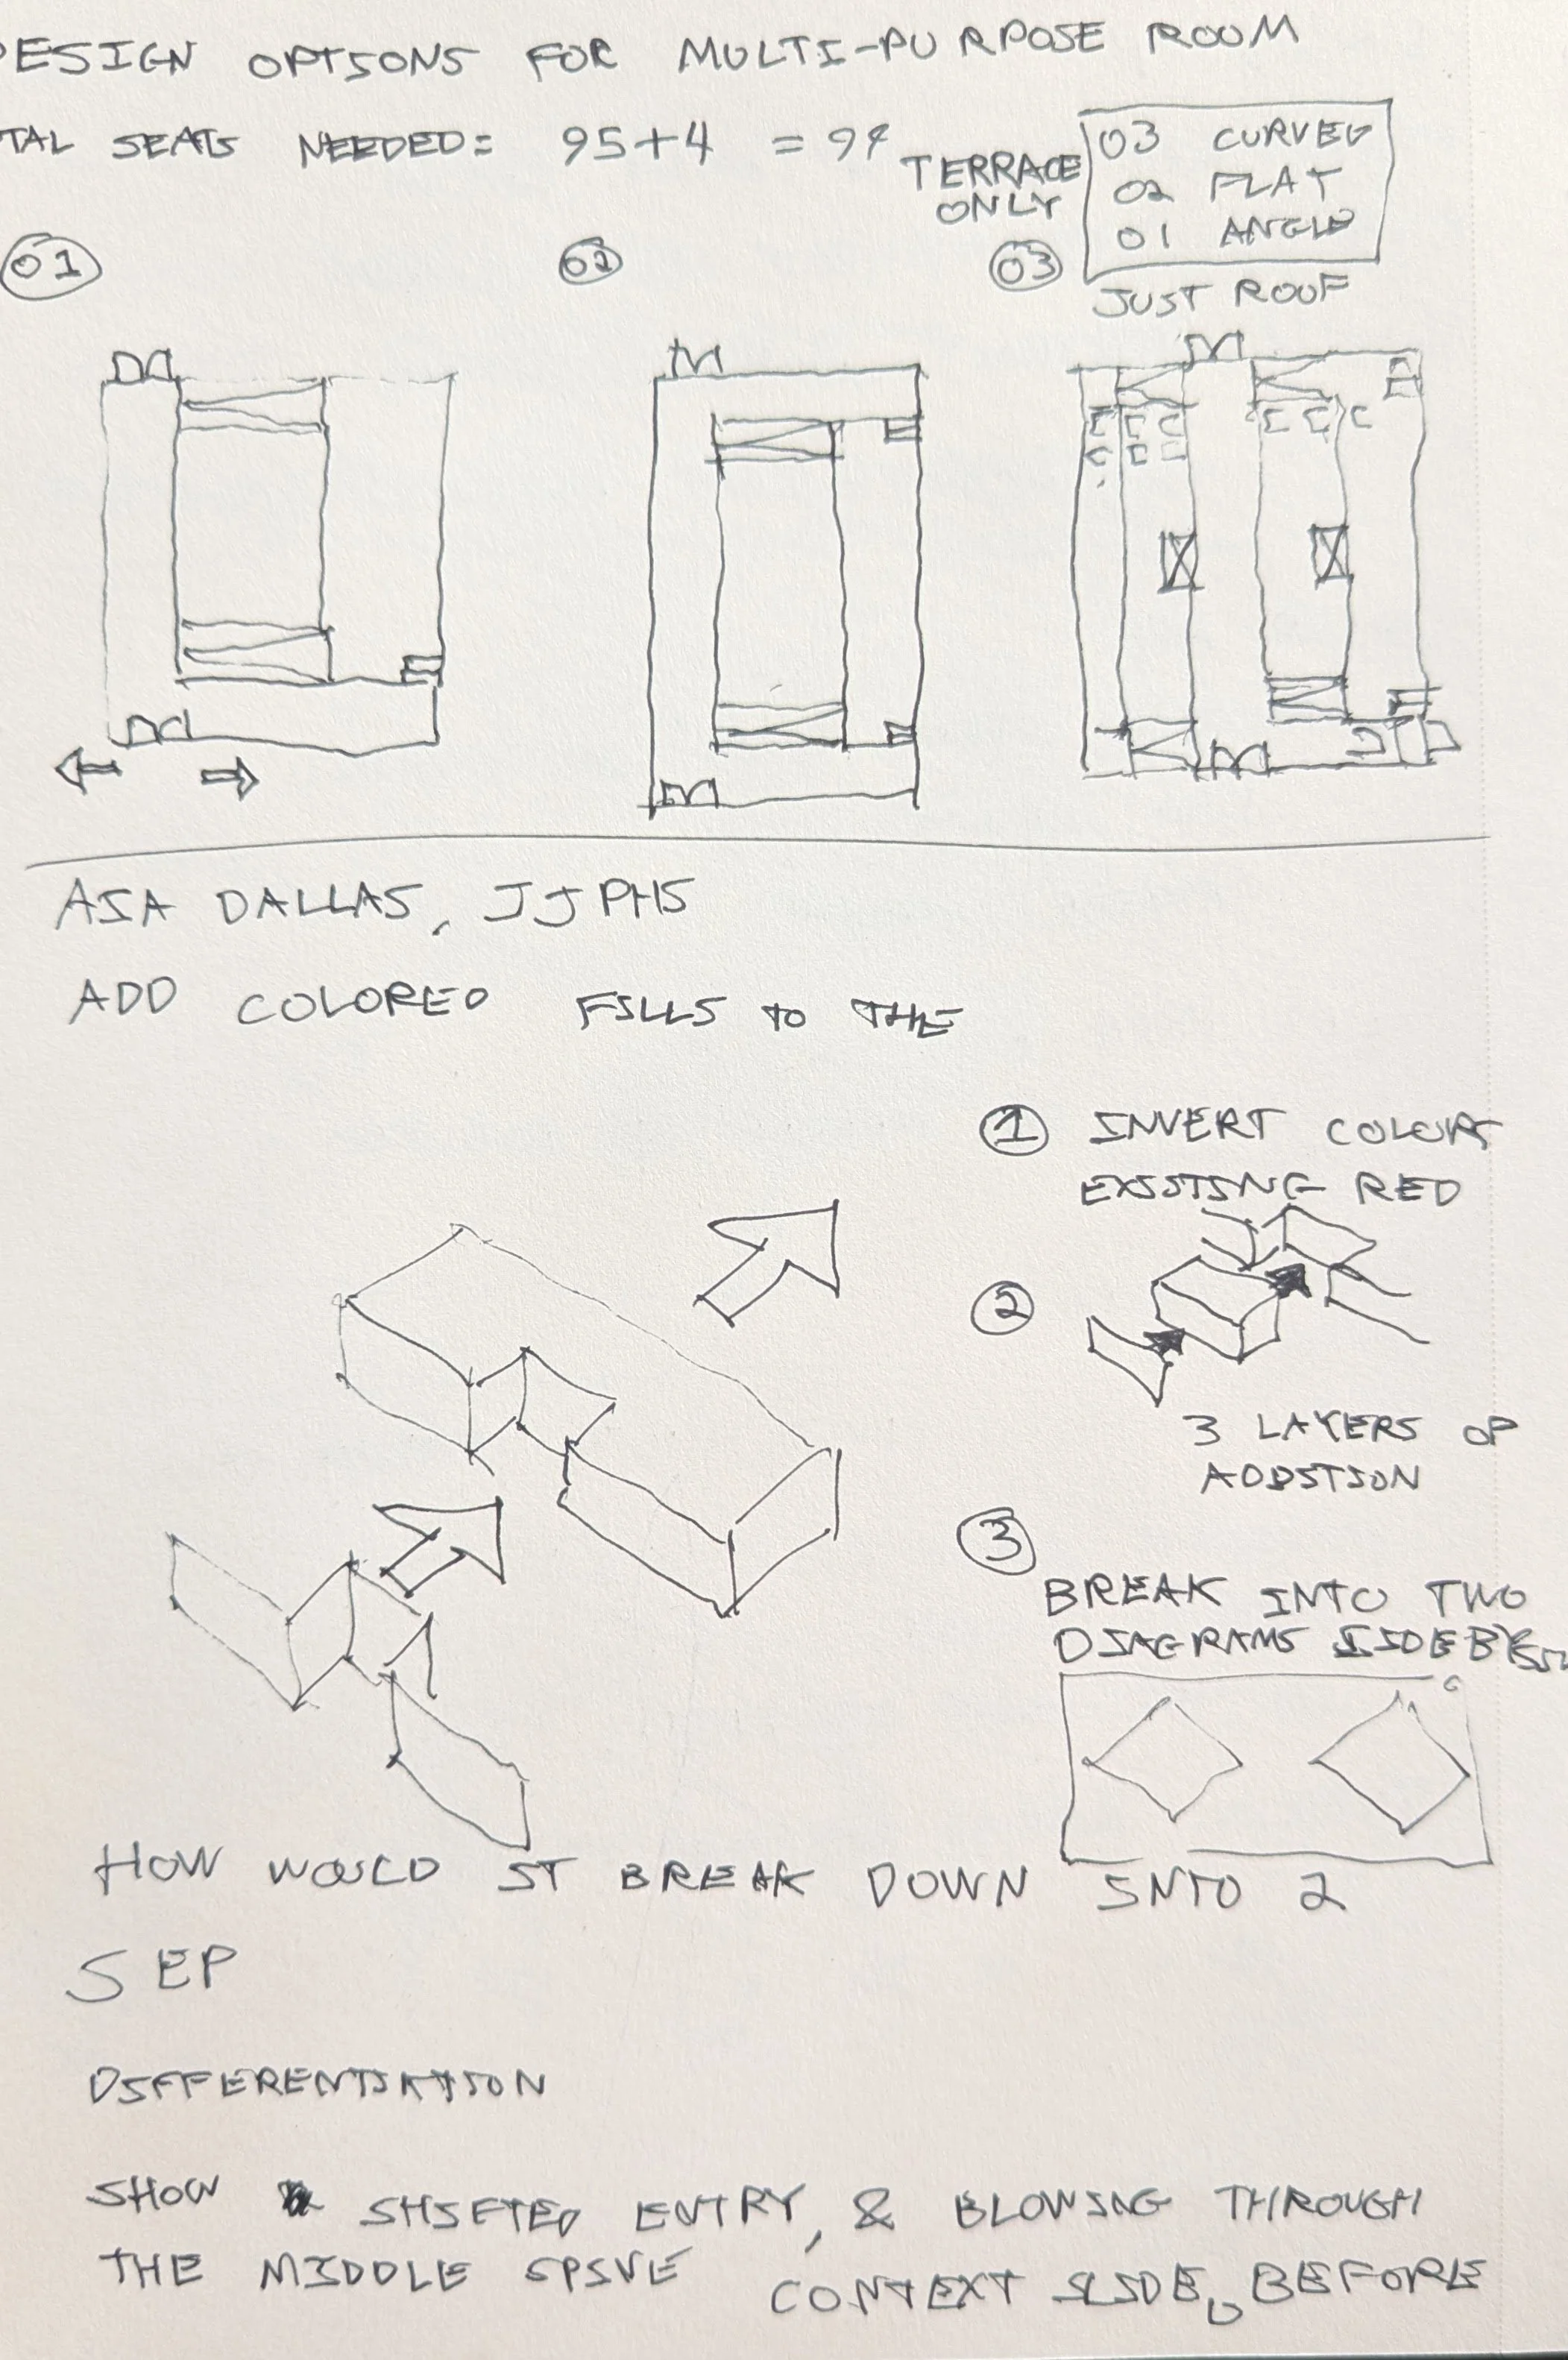 ESIGN OPTIONS FOR MULTI-PURPOSE ROOM
TAL SEATS NEEDED: 95+4 = 99
TERRACE ONLY
03 CURVED
02 FLAT
01 ANGLE
JUST ROOF
01
02
03
AIA DALLAS, JJPHS
ADD COLORED FILLS TO THE
1 INVERT COLORS
EXISTING RED
2
3 LAYERS OF
ADDITION
3
BREAK INTO TWO
DIAGRAMS SIDE BY
HOW WOULD IT BREAK DOWN INTO 2
SEP
DIFFERENTIATION
SHOW SHIFTED ENTRY, & BLOWING THROUGH
THE MIDDLE SPINE
CONTEXT SLIDE, BEFORE